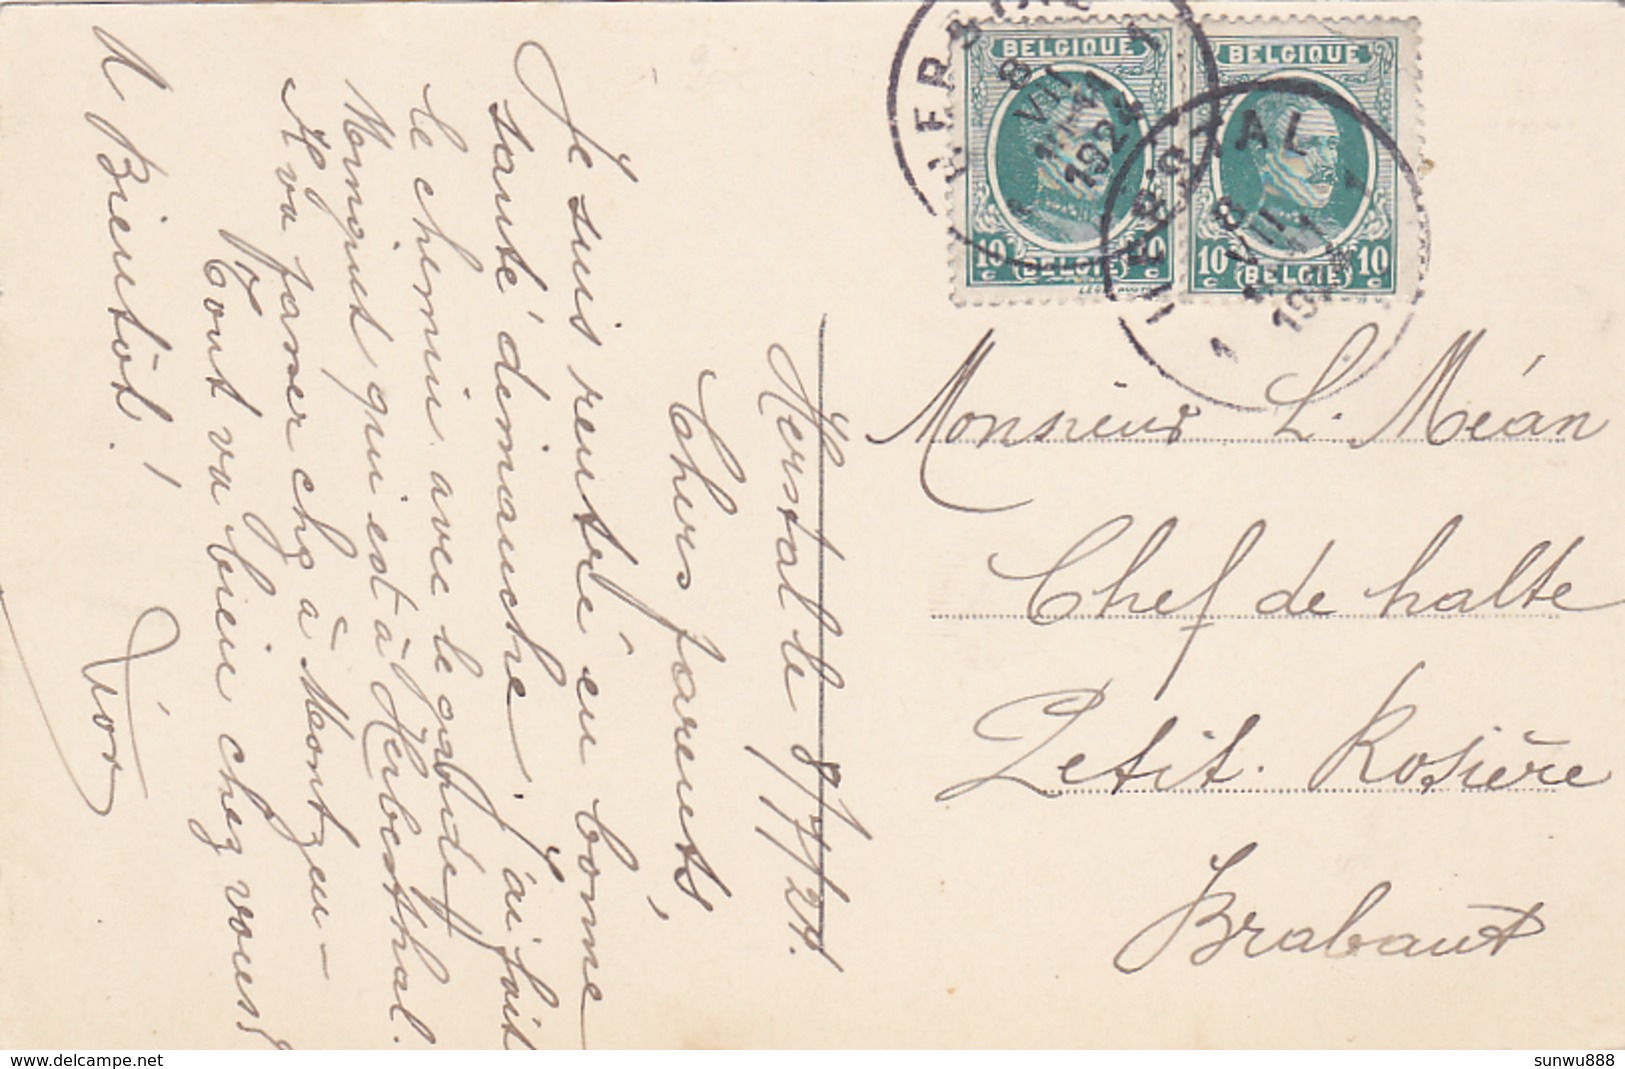 Herstal le 8/7/24.
Chers parents,
Je suis rentré en bonne
santé dimanche. J'ai fait
le chemin avec le
qui est à Herbesthal.
Il va passer chez à Montzen -
Tout va bien chez vous?
A Bientôt!
BELGIQUE
10 c BELGIE 10 c
BELGIQUE
10 c BELGIE 10 c
HERSTAL
8 VII
1924
HERSTAL
1
8 VII
1
Monsieur L. Méan
Chef de halte
Petit. Rosière
Brabant
delcampe.net
sunwu888